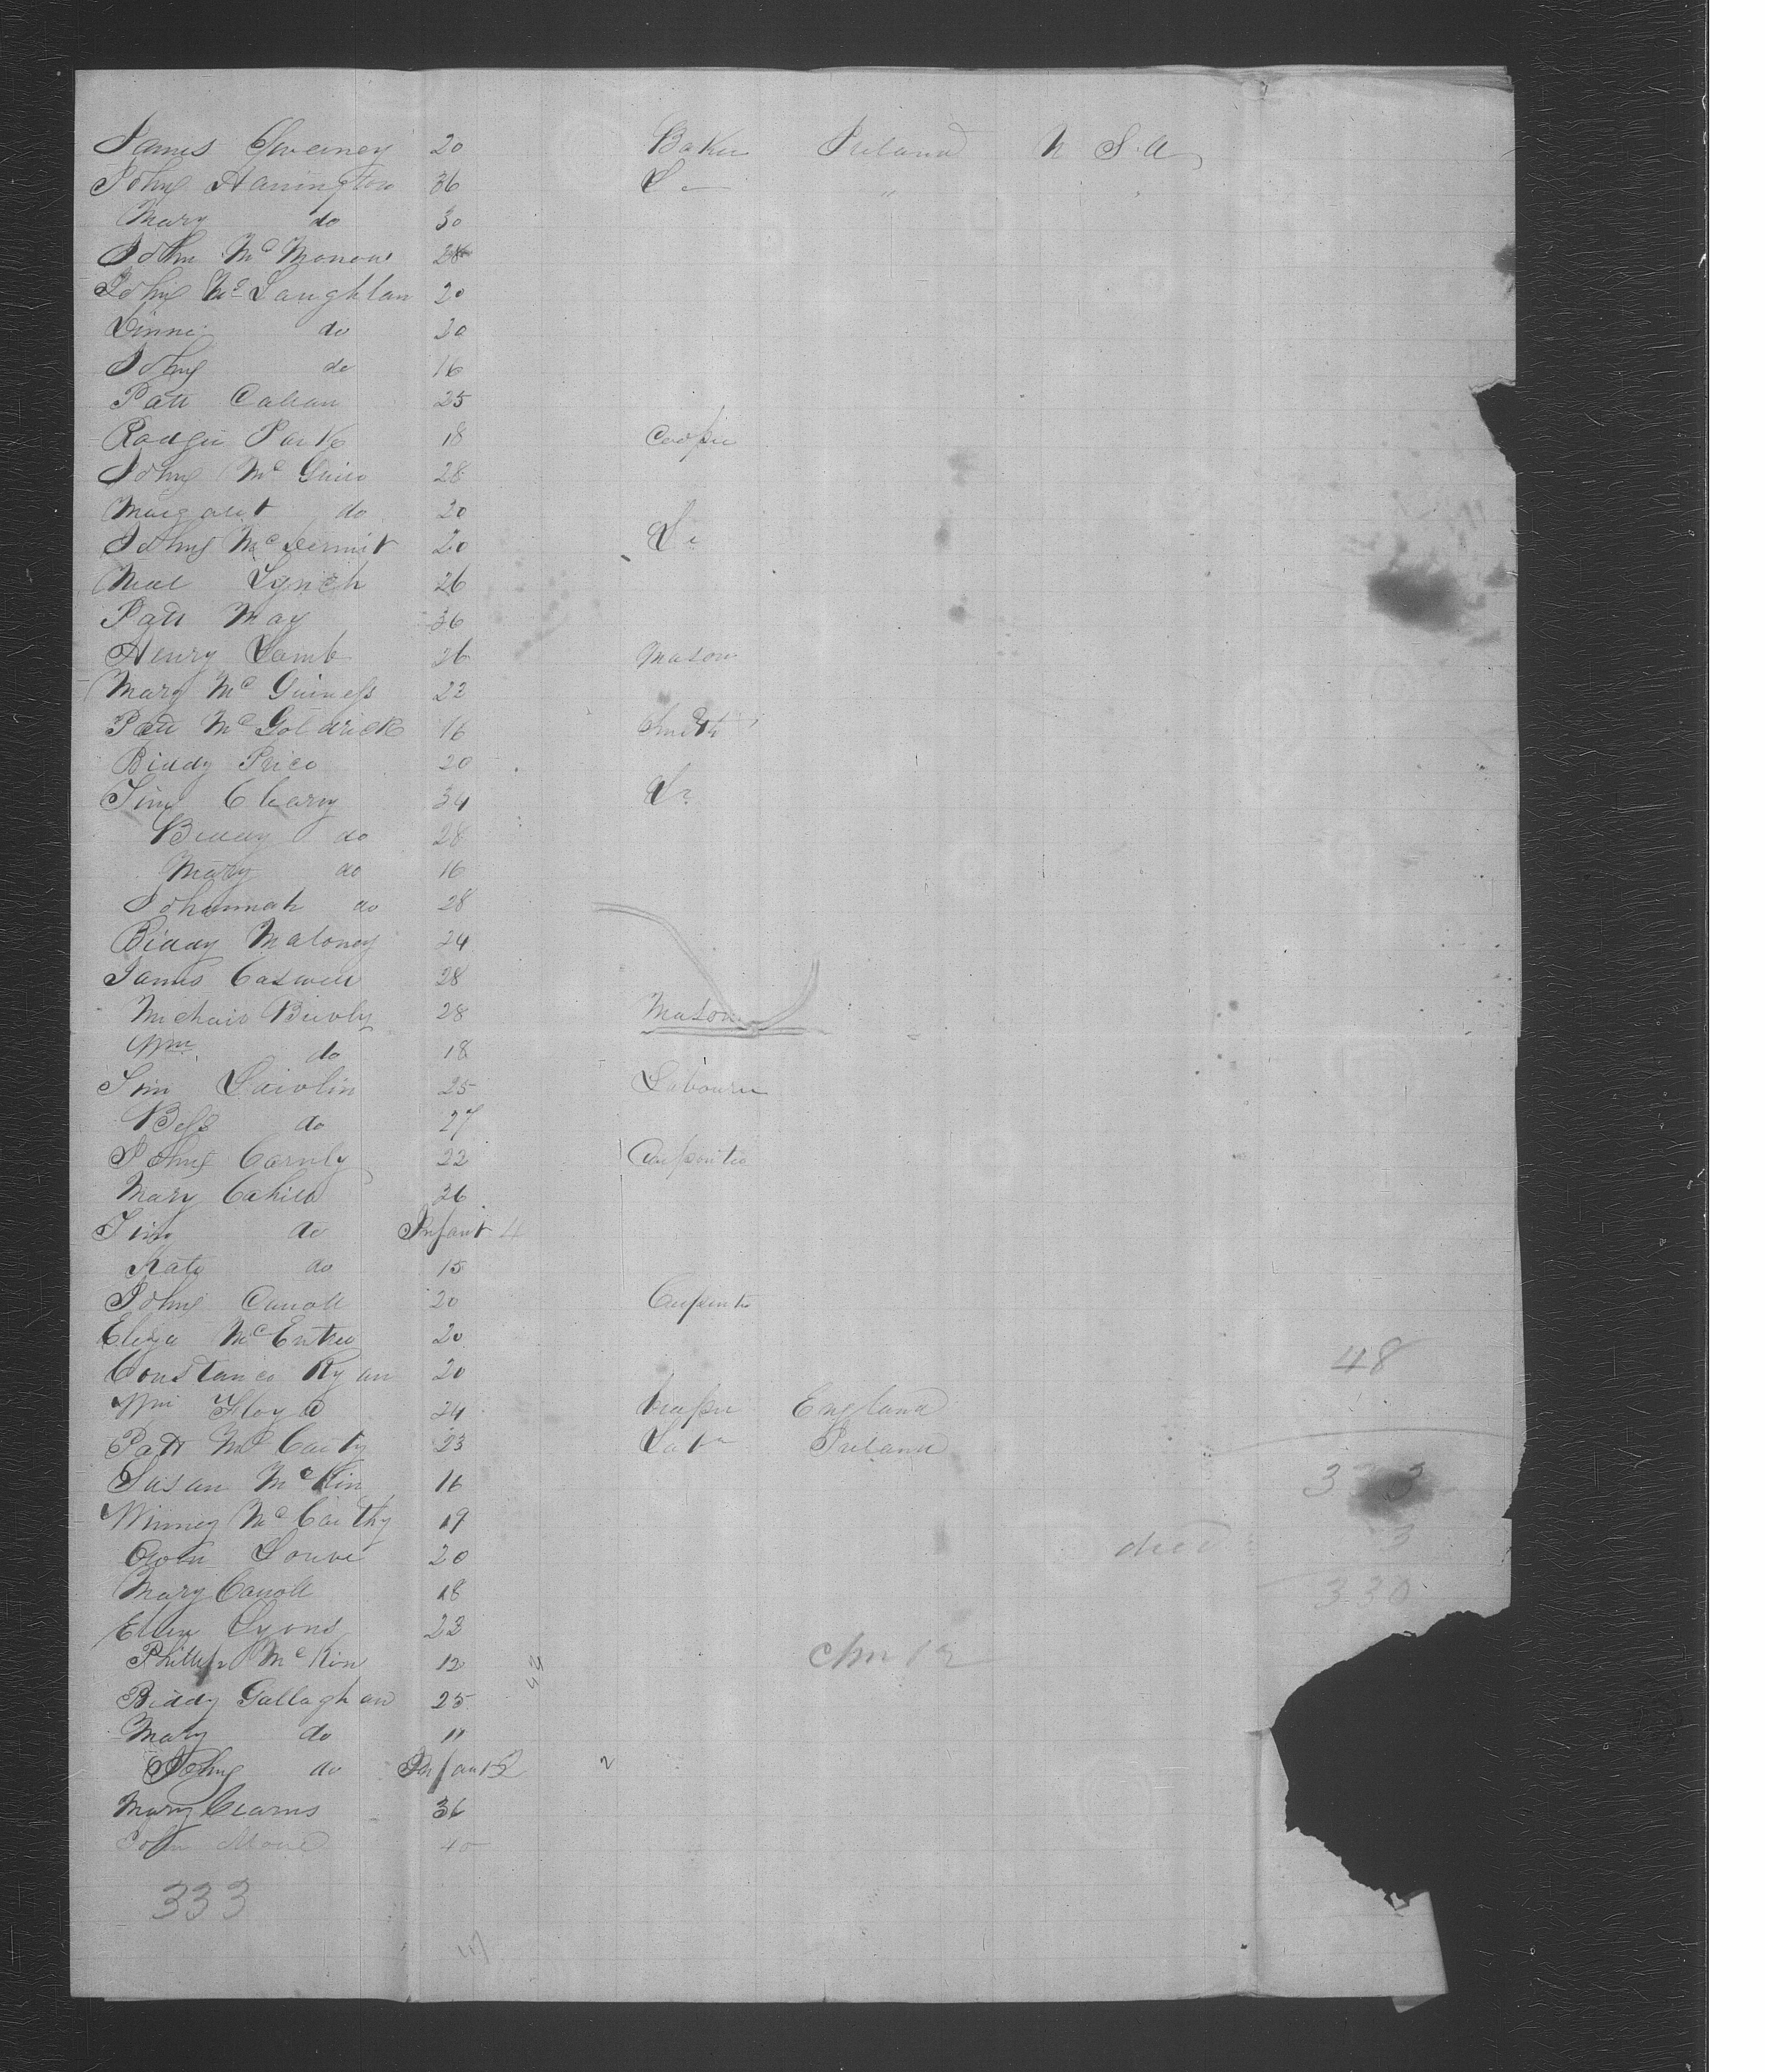 James Sweeney 20 Baker Ireland U S A
John Harrington 36 L " "
Mary do 30
John McMonow 28
John McLaughlan 20
Dinnis do 20
John do 16
Patt Callan 25
Rodger Parke 18 Cooper
John McGuire 28
Margaret do 20
John McDermit 20 L
Neal Lynch 26
Patt May 36
Henry Lamb 26 Mason
Mary McGuiness 22
Patt McGoldrick 16 Smith
Biddy Price 20
Tim Cleary 34 L
Biddy do 28
Mary do 16
Johannah do 28
Biddy Maloney 24
James Caswell 28
Michael 28 Mason
Wm do 18
Tim 25 Labourer
Bess do 27
John 22 Carpenter
Mary Cahill 36
Tim do Infant
Kate do 15
John Carroll 20 Carpenter
Eliza McEntee 20
48
Constance Ryan 20
Wm Floyd 24 Draper England
Patt McCarty 23 Labr Ireland
Susan McKin 16 333
Winney McCarthy 19
Owen 20 died 3
Mary Carroll 18 330
Ellen Lyons 23
Phillip McKin 12
Biddy Gallaghan 25
Mary do 11
John do Infant 2
Mary Cearns 36
John 40
333